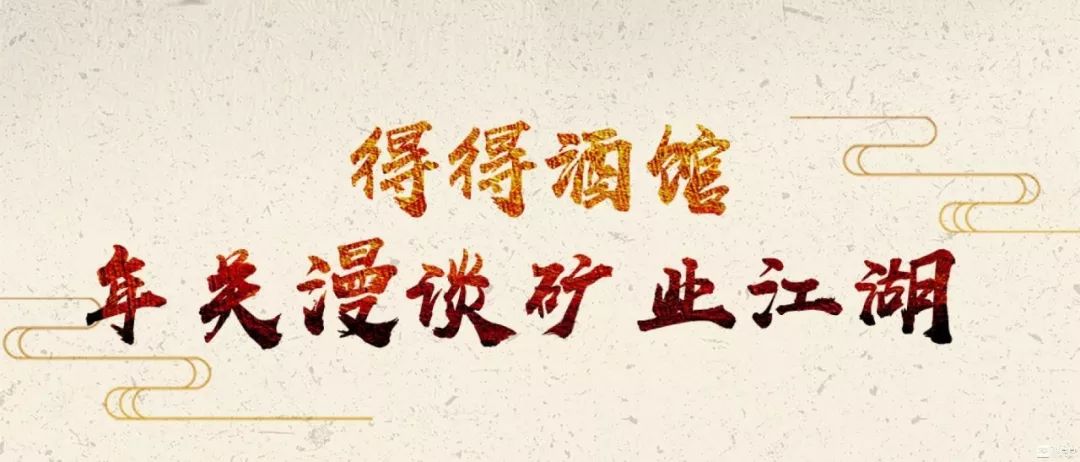 得得酒馆
年关漫谈矿业江湖